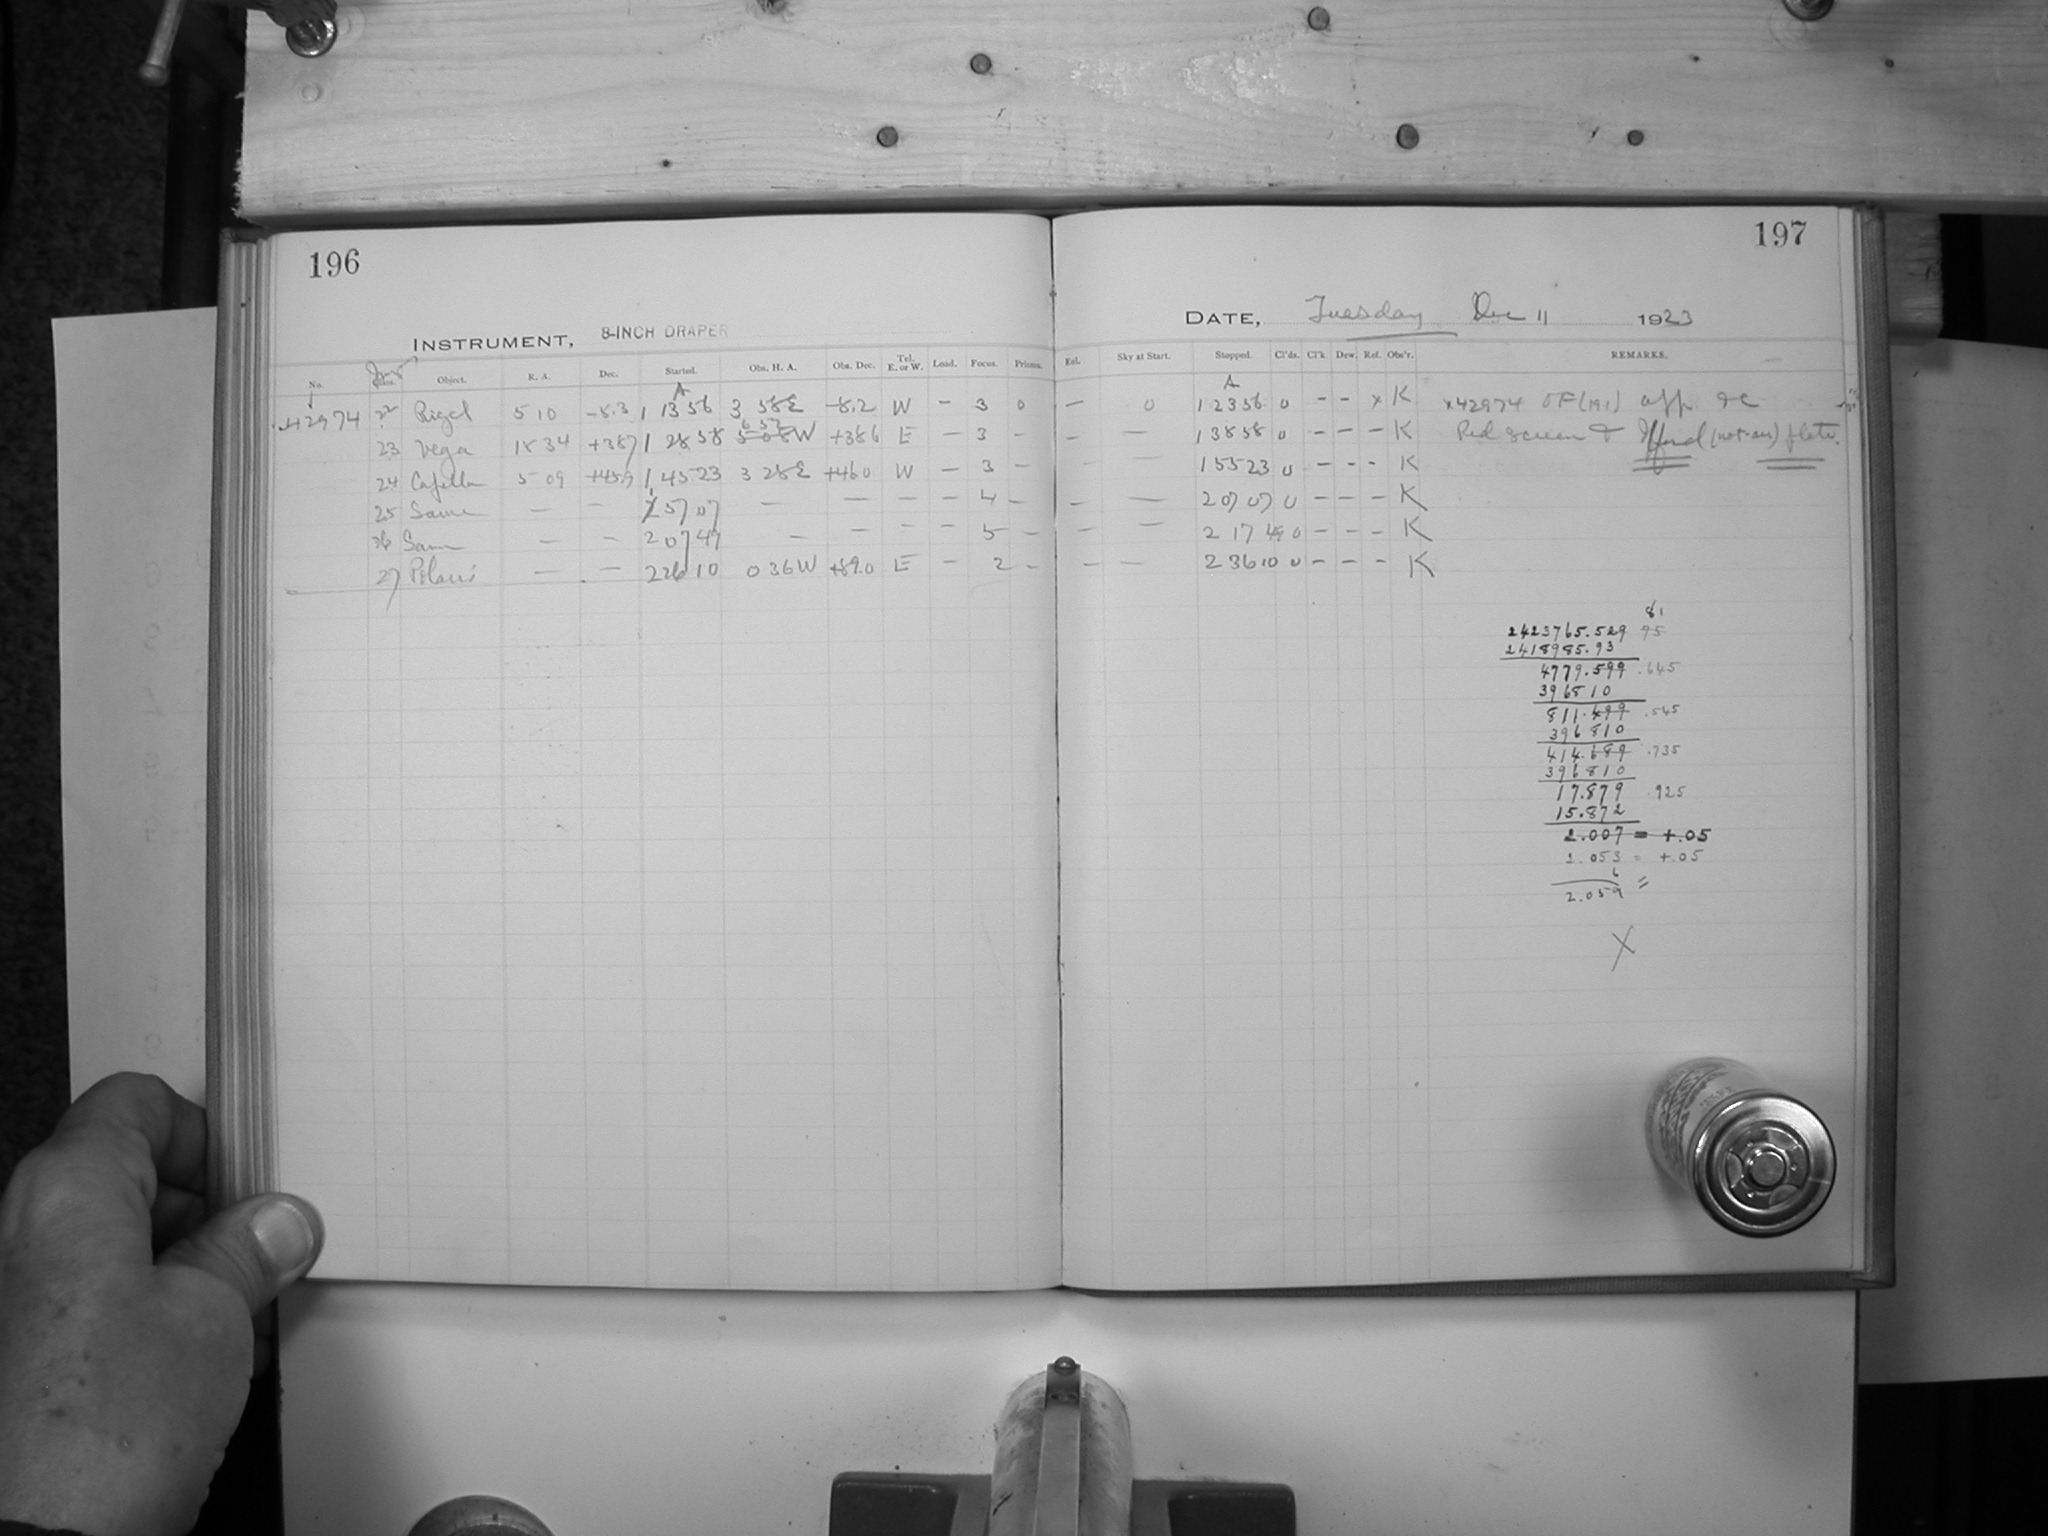 196
INSTRUMENT, 8-INCH DRAPER
No. Object. R. A. Dec. Started. Obs. H. A. Obs. Dec. Tel. E. or W. Load. Focus. Prisms.
A
42974 22 Rigel 5 10 -8.3 1 13 56 3 58 E -8.2 W - 3 0
23 Vega 18 34 +38.7 1 28 58 6 53 5 08 W +38.6 E - 3 -
24 Capella 5 09 +45.9 1 45 23 3 28 E +46.0 W - 3 -
25 Same - - 1 57 07 - - - - 4 -
26 Same - - 2 07 49 - - - - 5 -
27 Polaris - - 2 26 10 0 36 W +89.0 E - 2 -
197
DATE, Tuesday Dec 11 1923
Exl. Sky at Start. Stopped. Cl'ds. Cl'k Dew. Ref. Obs'r. REMARKS.
A
- 0 1 23 56 0 - - x K x42974 OF (191)
- - 1 38 58 0 - - - K Red screen & (not-au) plate.
- - 1 55 23 0 - - - K
- - 2 07 07 0 - - - K
- - 2 17 49 0 - - - K
- - 2 36 10 0 - - - K
81
2423765.529 95
2418985.93
4779.599 .645
396810
811.499 .545
396810
414.689 .735
396810
17.879 .925
15.872
2.007 = +.05
2.053 = +.05
6
2.059 =
X